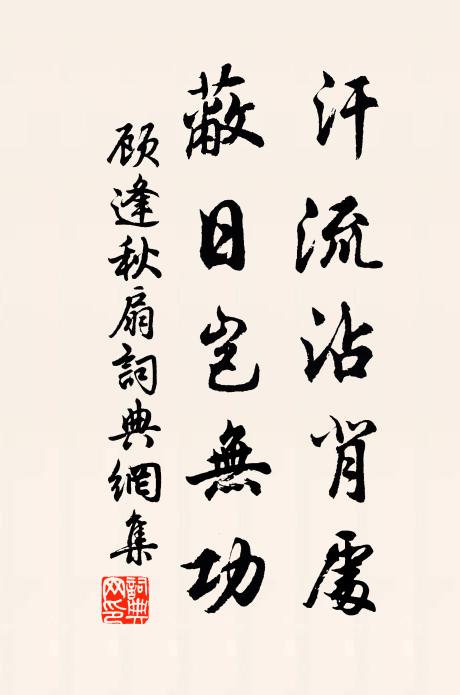 汗流沾背處
蔽日豈無功
顾逢秋扇詞典網集
詞典
网印